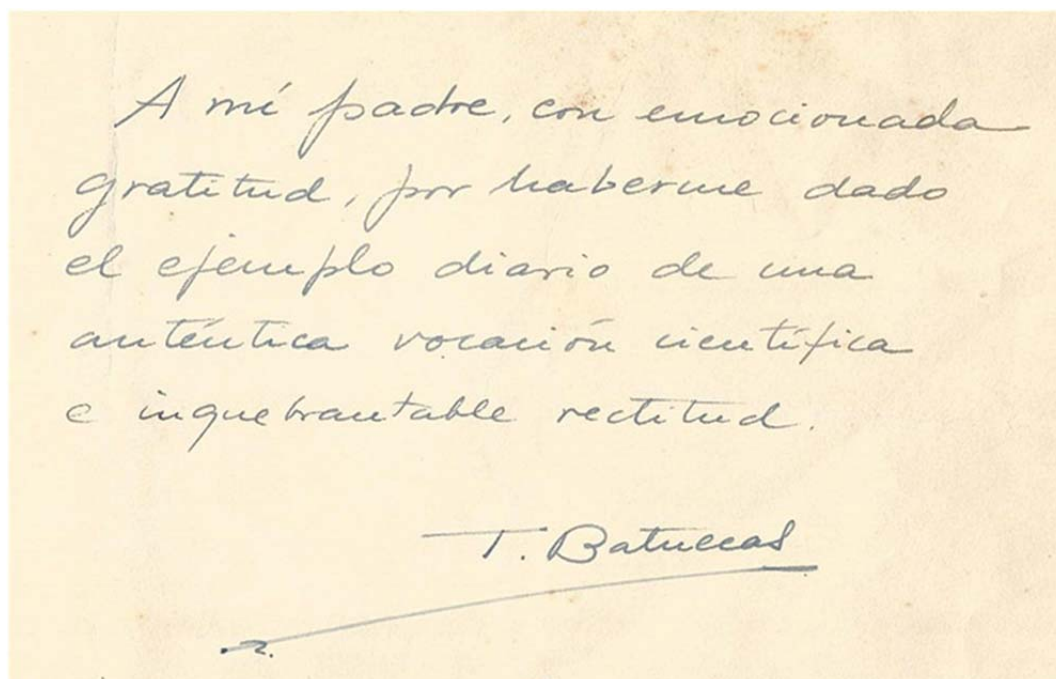 A mí padre, con emocionada
gratitud, por haberme dado
el ejemplo diario de una
auténtica vocación científica
e inquebrantable rectitud.
T. Batuecas